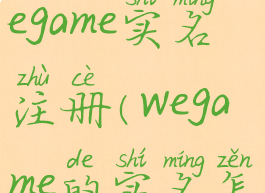 shí míng
egame实名
zhù cè
注册(wega
de shí míng zěn
me的实名怎